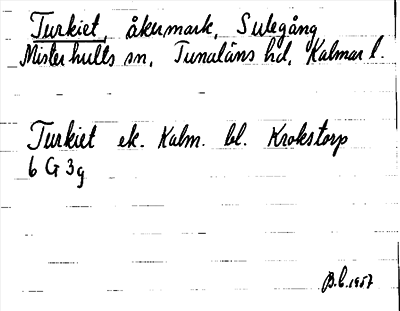 Turkiet, åkermark, Sulegång
Misterhults sn, Tunaläns hd, Kalmar l.
Turkiet ek. Kalm. bl. Krokstorp
6 G 3g
B.C. 1957